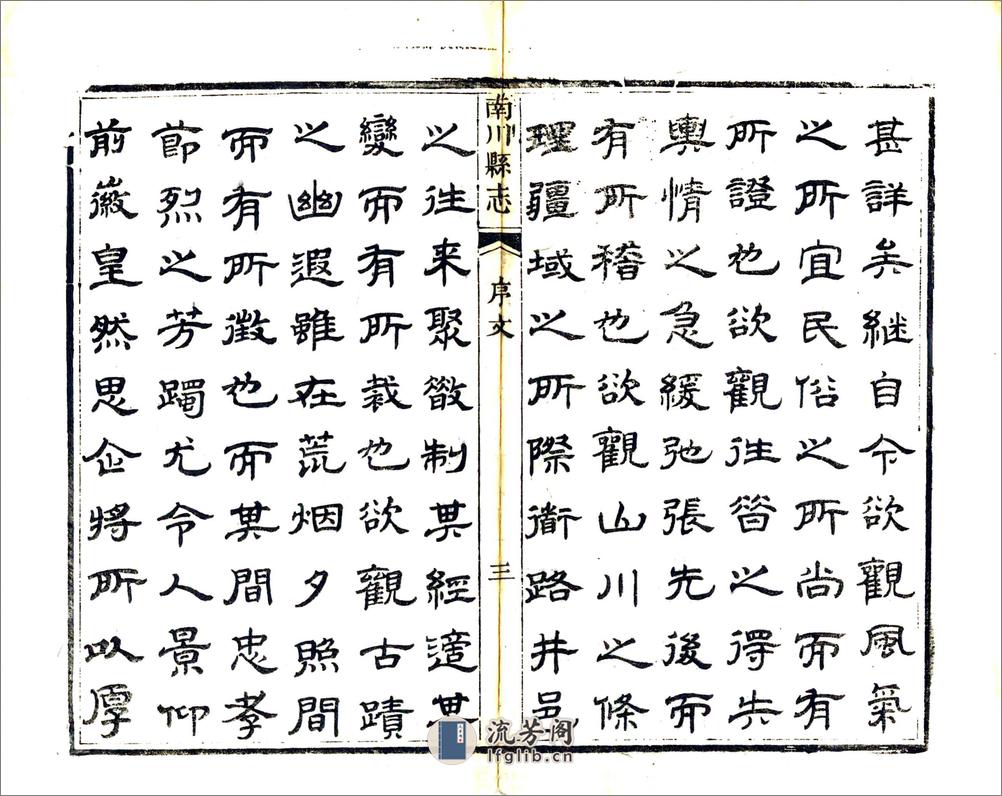 甚詳矣継自今欲觀風氣
之所宜民俗之所尚而有
所證也欲觀往昝之得失
輿情之急緩弛張先後而
有所稽也欲觀山川之條
理疆域之所際衝路井邑
南川縣志
序文
三
之往来聚散制其經適其
變而有所裁也欲觀古蹟
之幽遐雖在荒烟夕照間
而有所徵也而其間忠孝
節烈之芳躅尤令人景仰
前徽皇然思企將所以厚
流芳阁
lfglib.cn